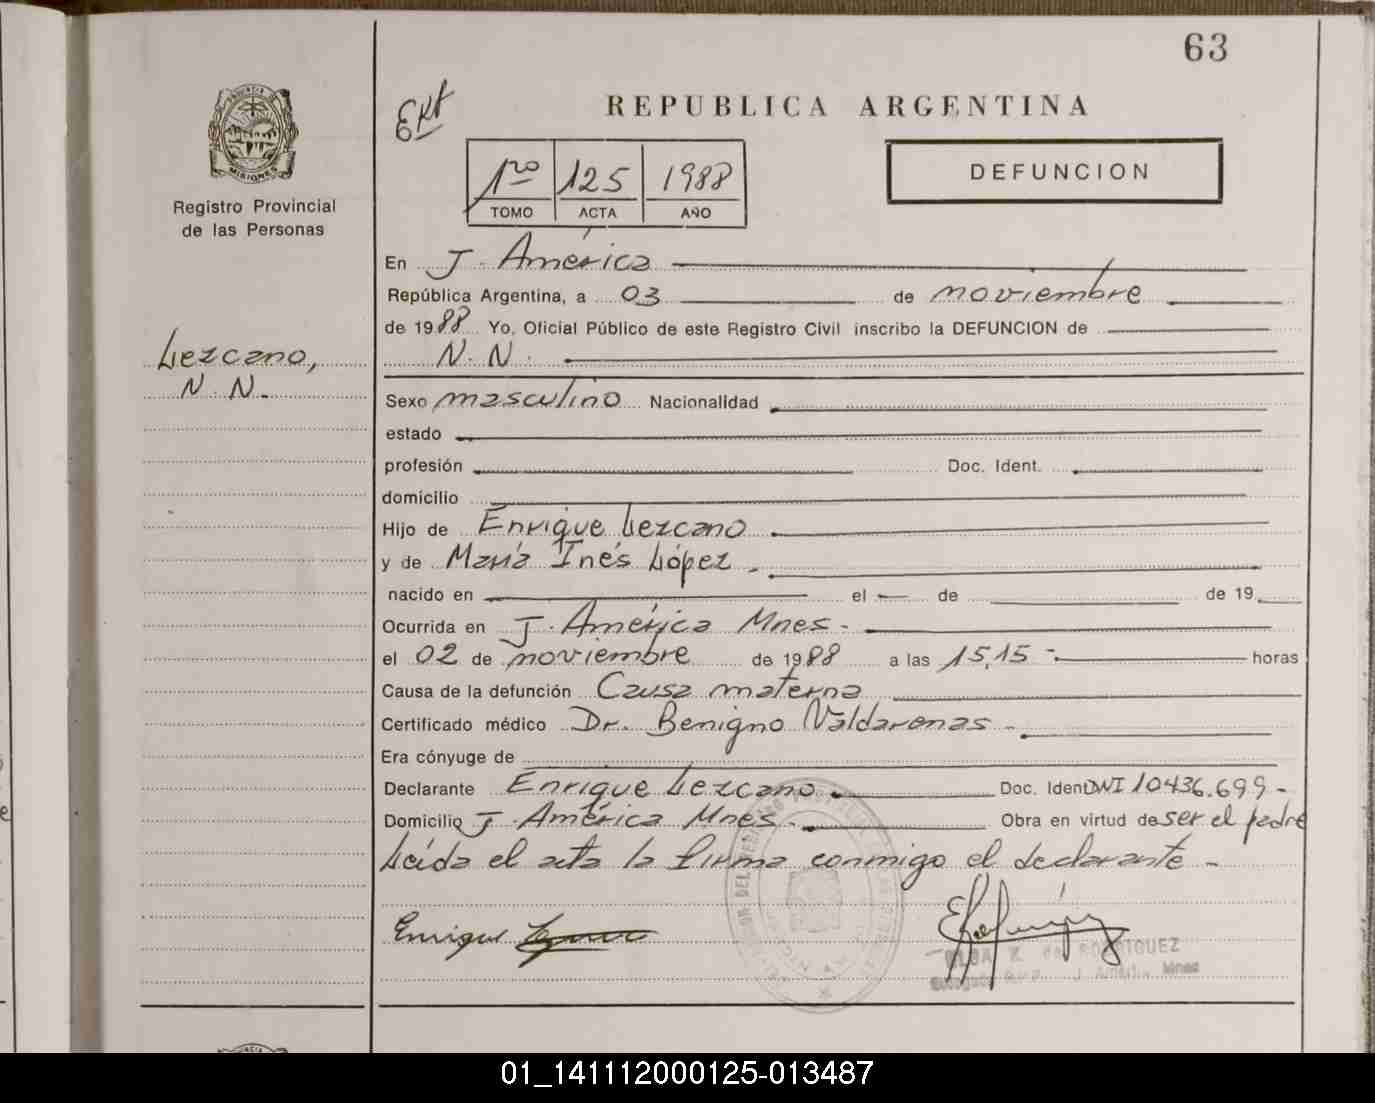 63
Ext
REPUBLICA ARGENTINA
PROVINCIA DE
MISIONES
Registro Provincial
de las Personas
1ro 125 1988
TOMO ACTA AÑO
DEFUNCION
En J. América
República Argentina, a 03 de noviembre
de 1988 Yo, Oficial Público de este Registro Civil inscribo la DEFUNCION de
N. N.
Lezcano,
N. N.
Sexo masculino Nacionalidad
estado
profesión Doc. Ident.
domicilio
Hijo de Enrique Lezcano
y de María Inés López.
nacido en el — de de 19
Ocurrida en J. América Mnes.
el 02 de noviembre de 1988 a las 15,15 horas
Causa de la defunción Causa materna
Certificado médico Dr. Benigno Valdarenas
Era cónyuge de
Declarante Enrique Lezcano Doc. Ident DNI 10436.699-
Domicilio J. América Mnes. Obra en virtud de ser el padre
Leída el acta la firma conmigo el declarante -
Enrique
RODRIGUEZ
J. América Mnes
01_141112000125-013487